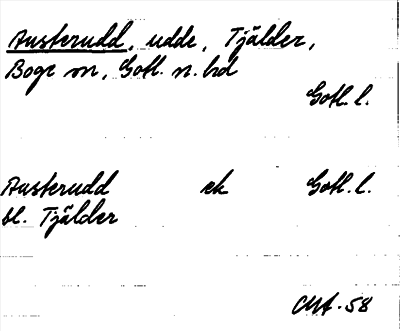 Austerudd, udde, Tjälder,
Boge sn, Gotl. n. hd
Gotl. l.
Austerudd ek Gotl. l.
bl. Tjälder
CMA. 58